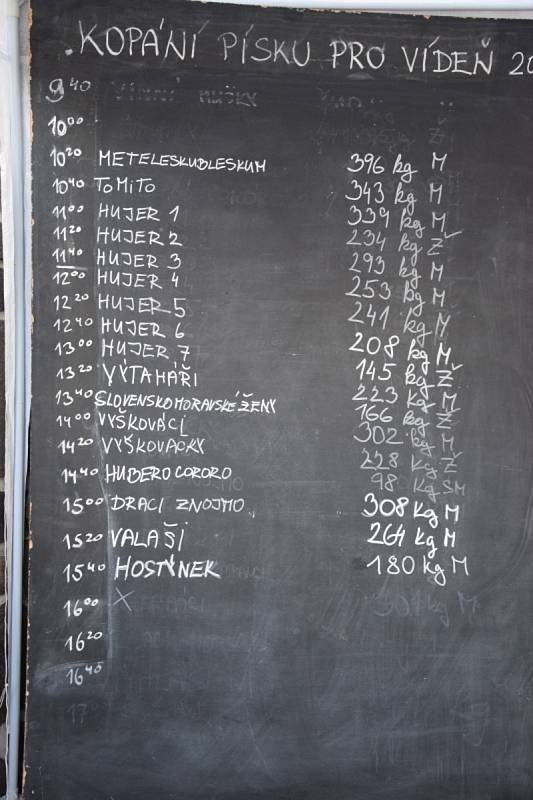 KOPÁNÍ PÍSKU PRO VÍDEŇ 20
9⁴⁰
10⁰⁰
10²⁰ METELESKUBLESKUM 396 kg M
10⁴⁰ TOMITO 343 kg M
11⁰⁰ HUJER 1 339 kg M
11²⁰ HUJER 2 234 kg Ž
11⁴⁰ HUJER 3 293 kg M
12⁰⁰ HUJER 4 253 kg M
12²⁰ HUJER 5 241 kg M
12⁴⁰ HUJER 6 208 kg M
13⁰⁰ HUJER 7 145 kg Ž
13²⁰ VÝTAHÁŘI 223 kg M
13⁴⁰ SLOVENSKOMORAVSKÉ ŽENY 166 kg Ž
14⁰⁰ VÝŠKOVÁCI 302 kg M
14²⁰ VÝŠKOVAČKY 228 kg Ž
14⁴⁰ HUBERO CORORO 98 kg SM
15⁰⁰ DRACI ZNOJMO 308 kg M
15²⁰ VALAŠI 264 kg M
15⁴⁰ HOSTÝNEK 180 kg M
16⁰⁰ X
16²⁰
16⁴⁰